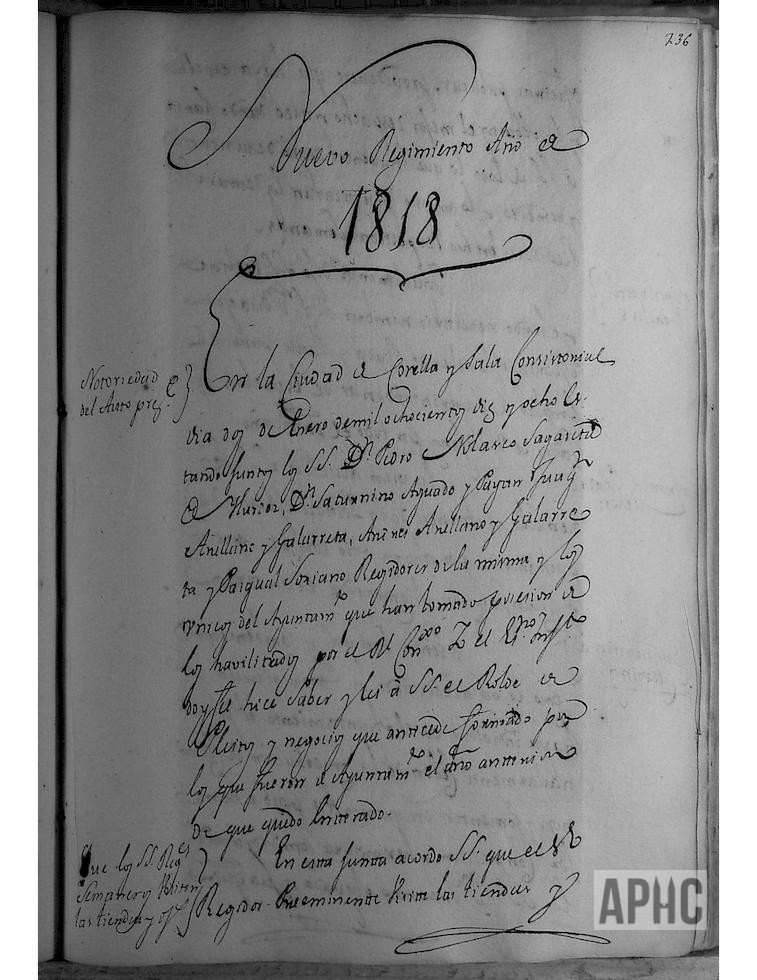 236
Nuevo Regimiento Año de
1818
Notoriedad
del Auto
En la Ciudad de Corella y Sala Consistorial
dia dos de Enero de mil ochocientos diez y ocho es-
tando juntos los SS. Dn. Pedro Nolasco Sagaseta
de Dn. Saturnino Aguado y Payan Juaqn
Arellano y Galarreta, Andres Arellano y Galarre
ta y Pasqual Soriano Regidores de la misma y los
unicos del Ayuntamto que han tomado posesion de
los havilitados por el Rl Conxo Yo el Essno
doy fe hice saber y lei a SS. el Rolde de
Pleitos y negocios que antecede formado por
los que fueron de Ayuntamto el año anterior
de que quedo enterado.
Que los SS. Regs
Semaneros visiten
las tiendas y
En esta junta acordo SS. que el
Regidor Preeminente visite las tiendas y
APHC